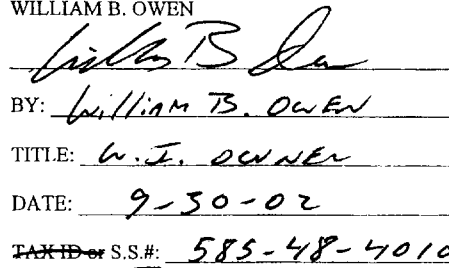 WILLIAM B. OWEN
BY: William B. OWEN
TITLE: W.I. OWNER
DATE: 9-30-02
TAX ID or S.S.#: 585-48-4010